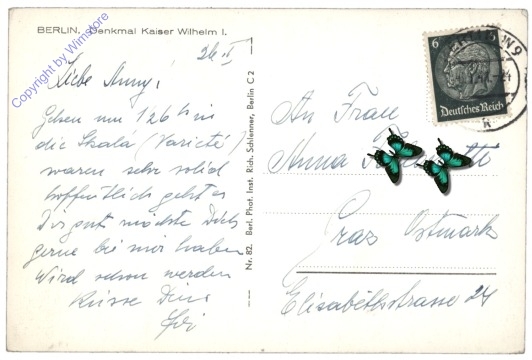 BERLIN. Denkmal Kaiser Wilhelm I.
Copyright by Wimstore
26 II
Liebe Anny!
Gehen um 1/2 6 h in
die Skala (Varieté)
waren sehr solid
hoffentlich geht es
Dir gut möchte Dich
gerne bei mir haben
Wird schon werden
Küsse Deine
Nr. 82. Berl. Phot. Inst. Rich. Schlenner, Berlin C 2
6 6
Deutsches Reich
An Frau
Anna
Graz Ostmark
Elisabethstrasse 24